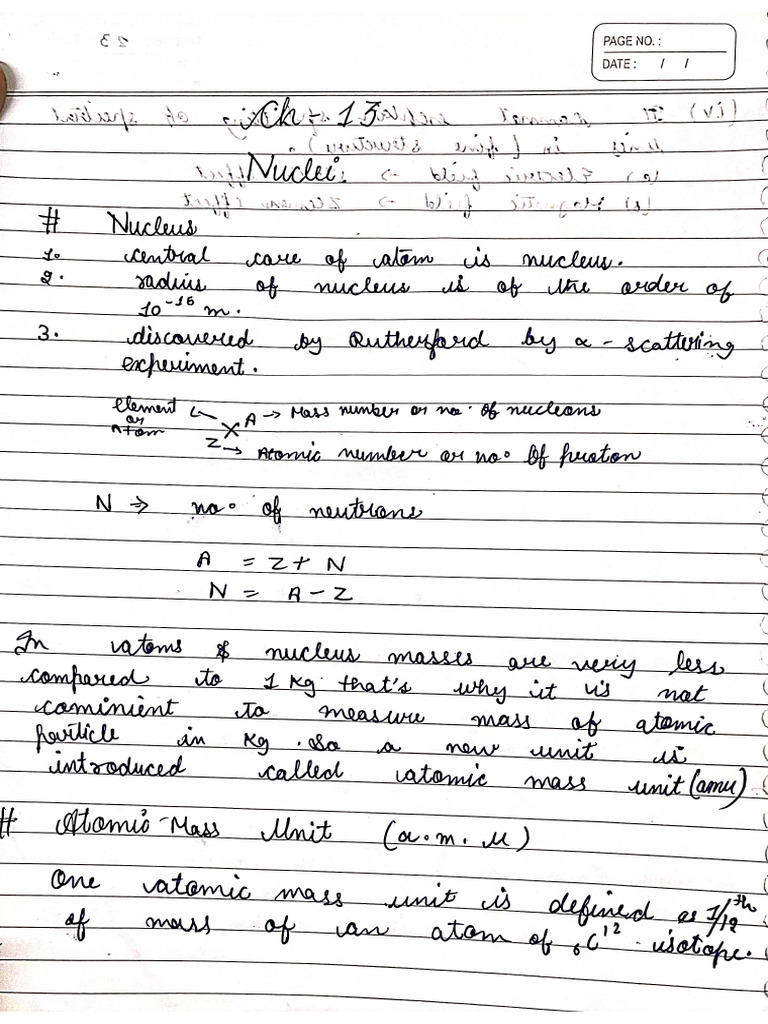 PAGE NO. :
DATE : / /
Ch - 13
Nuclei
# Nucleus
1. central core of atom is nucleus.
2. radius of nucleus is of the order of
10⁻¹⁶ m.
3. discovered by Rutherford by α - scattering
experiment.
element or atom ← X A → Mass number or no. of nucleons
Z → Atomic number or no. of proton
N ⇒ no. of neutrons
A = Z + N
N = A - Z
In atoms & nucleus masses are very less
compared to 1 Kg that's why it is not
cominient to measure mass of atomic
particle in Kg . So a new unit is
introduced called atomic mass unit (amu)
# Atomic Mass Unit (a.m.u)
One atomic mass unit is defined as 1/12th
of mass of an atom of ₆C¹² isotope.